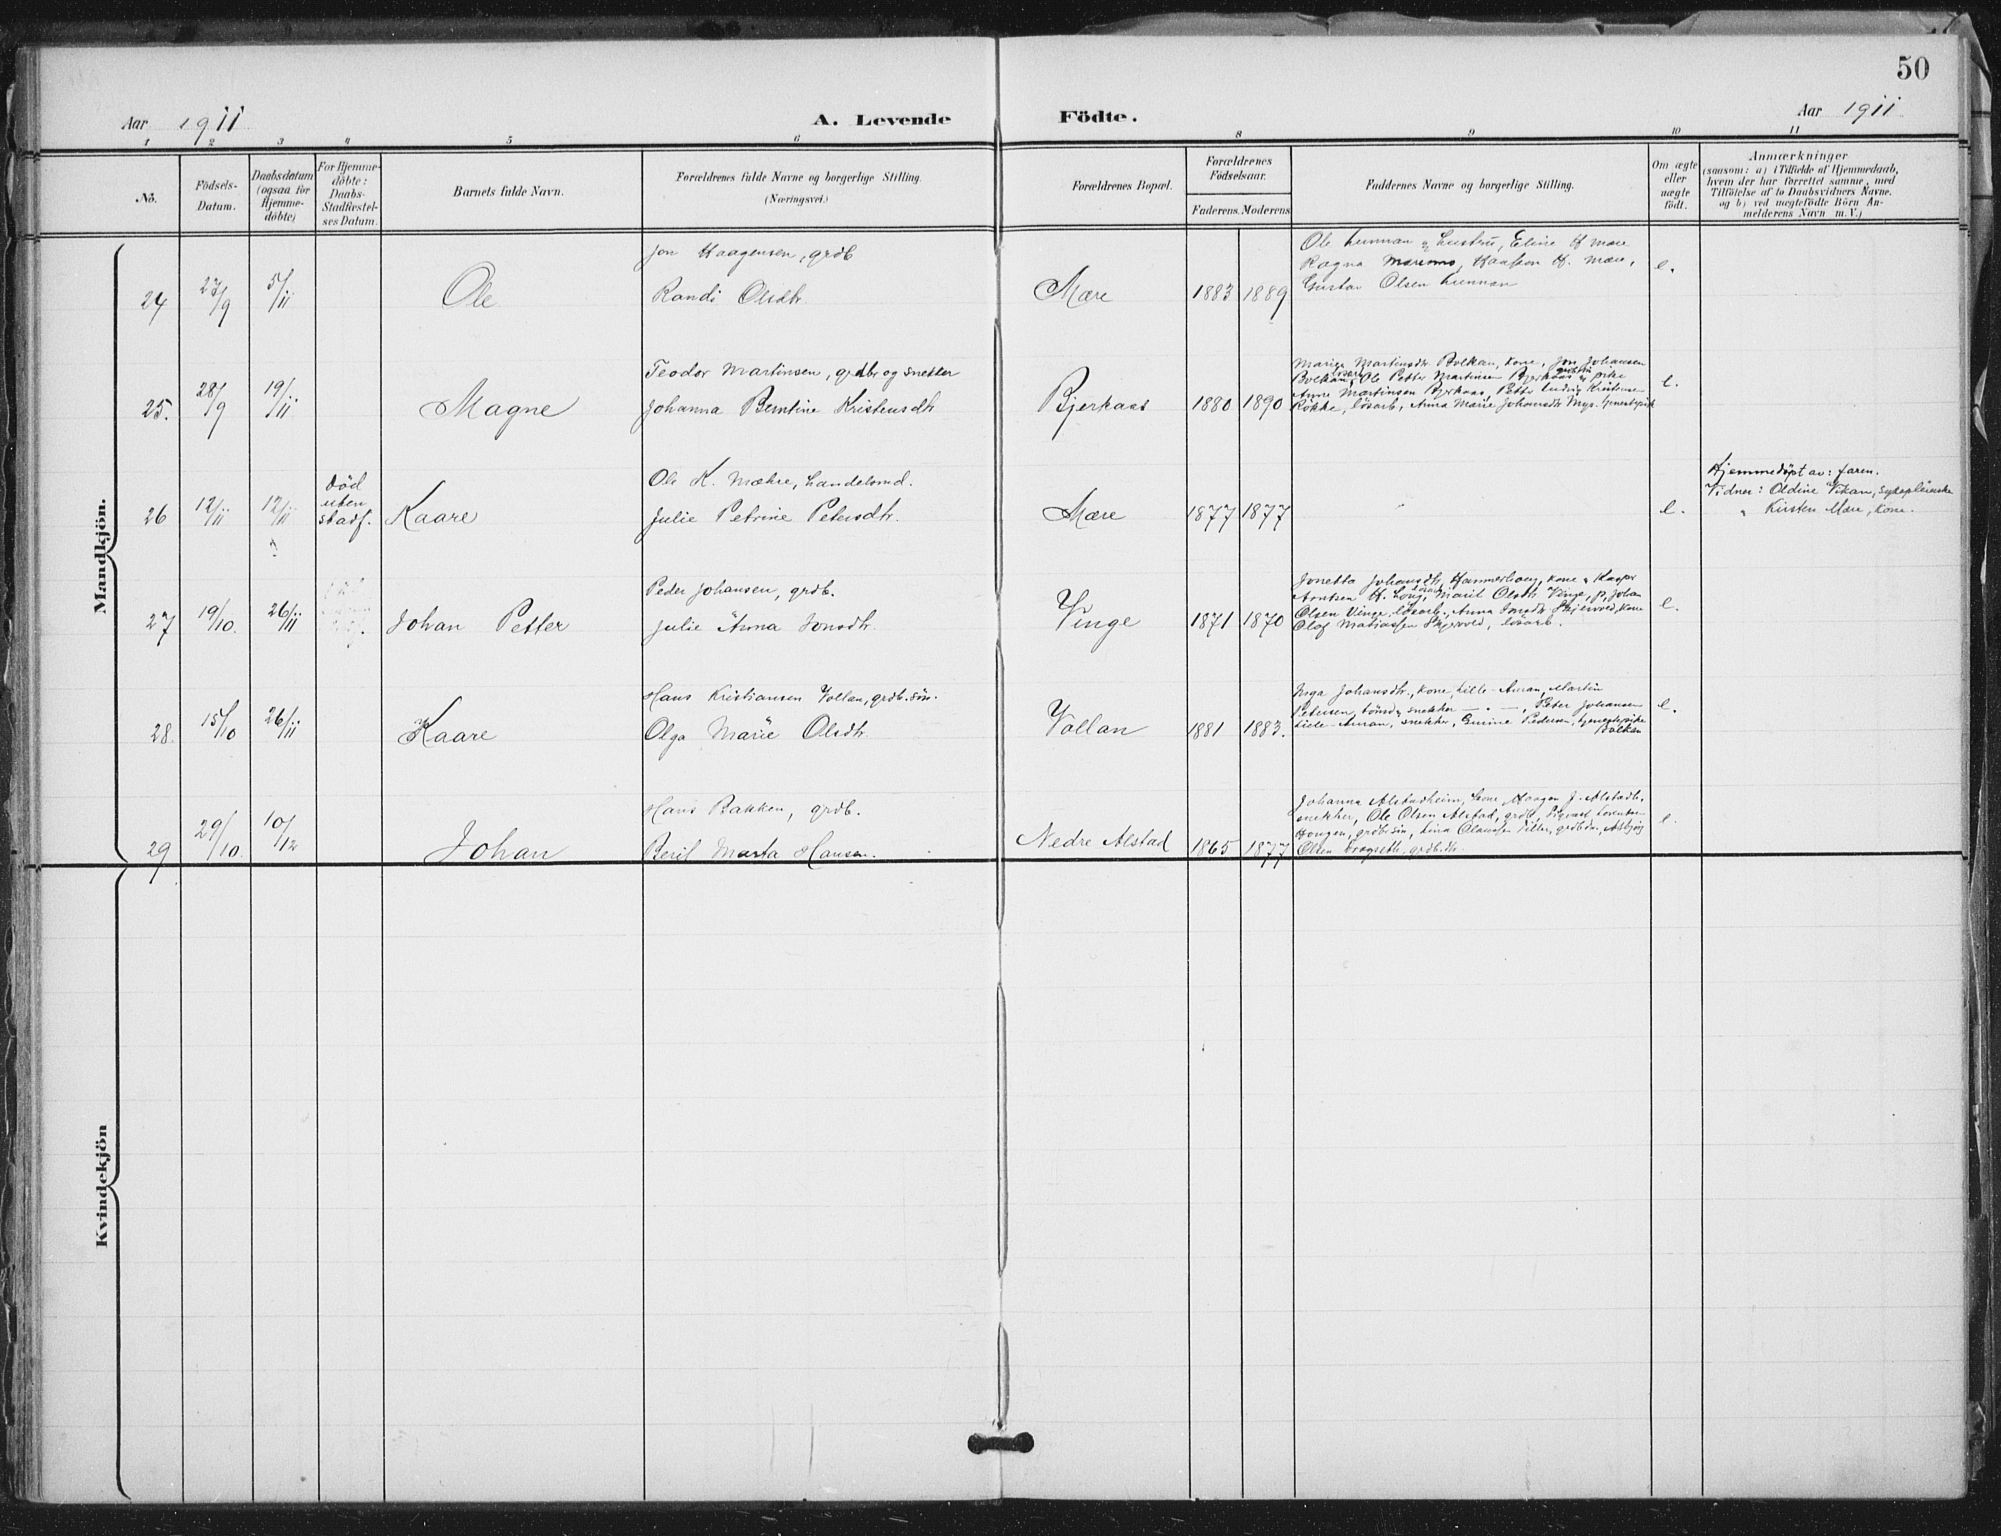 50
Aar 1911 A. Levende Födte. Aar 1911
1 2 3 4 5 6 8 9 10 11
No.
Födsels-
Datum.
Daabsdatum
(ogsaa for
Hjemme-
döbte)
For Hjemme-
döbte:
Daabs-
Stadfæstel-
ses Datum.
Barnets fulde Navn.
Forældrenes fulde Navne og borgerlige Stilling.
(Næringsvei.)
Forældrenes Bopæl.
Forældrenes
Födselsaar.
Faderens. Moderens
Faddernes Navne og borgerlige Stilling.
Om ægte
eller
uægte
födt.
Anmærkninger
(saasom: a) i Tilfælde af Hjemmedaab,
hvem der har forrettet samme, med
Tilföielse af to Daabsvidners Navne.
og b) ved uægtefödte Börn An-
melderens Navn m. V.)
Mandkjön.
24 27/9 5/11 Ole
Jon Haagensen, grdb
Randi Olsdtr
Mære 1883 1889
Ole Lunnan og hustru, Eline H Mære
Ragna H. Mære,
Gustav Olsen Lunnan
e.
25. 28/9 19/11 Magne
Teodor Martinsen, grdbr og snekker
Johanna Berntine Kristensdtr
Bjerkaas 1880 1890
Martinsdtr Bolkan, kone, Jon Johansen
Bolkan, Ole Petter Martinsen Bjerkaas pike
Anne Martinsen Bjerkaas, Petter Ludvig Kristensen
Rökke, lösarb, Anna Marie Johansdtr tjenestepik
e.
26 12/11 12/11
Död
uten
stadf.
Kaare
Ole K. Mæhre, handelsmd.
Julie Petrine Petersdtr.
Mære 1877 1877
e.
Hjemmedöpt av: faren.
Vidner: Oldine Vikan, sykepleierske
" Kirsten Mære, kone.
27 19/10. 26/11 Johan Petter
Peder Johansen, grdb.
Julie Anna Jonsdtr.
Vinge 1871 1870
Jonetta Johansdtr, Hammerhaug, kone, Kasper
Arntsen H. haug, Marit Olsdtr Vinge, p, Johan
Olsen Vinge, lösarb., Anna Jonsdtr Skjerved, kone
Olaf Matiassen Skjerved, lösarb.
e.
28. 15/10 26/11 Kaare
Hans Kristiansen Vollan, grdb. sön.
Olga Marie Olsdtr.
Vollan 1881 1883.
Inga Johansdtr., kone, Lille-Amran, Martin
Petersen, snekker — " —, Peter Johansen
Lille-Amran, snekker, Gurine Pedersen, tjenestepike
Bolkan
e.
29 29/10. 10/12 Johan
Hans Bakken, grdb.
Berit Marta Hansen.
Nedre Alstad 1865 1877
Johanna Alstadheim, kone, Haagen J. Alstadh.
snekker, Ole Olsen Alstad, grdb, Sigvart Lorntsen
Hougen, grdbr.sön, Lina Olaussen Viller, grdb.dr., Asbjörg
Olsen Dragseth, grdb.dtr.
e.
Kvindekjön